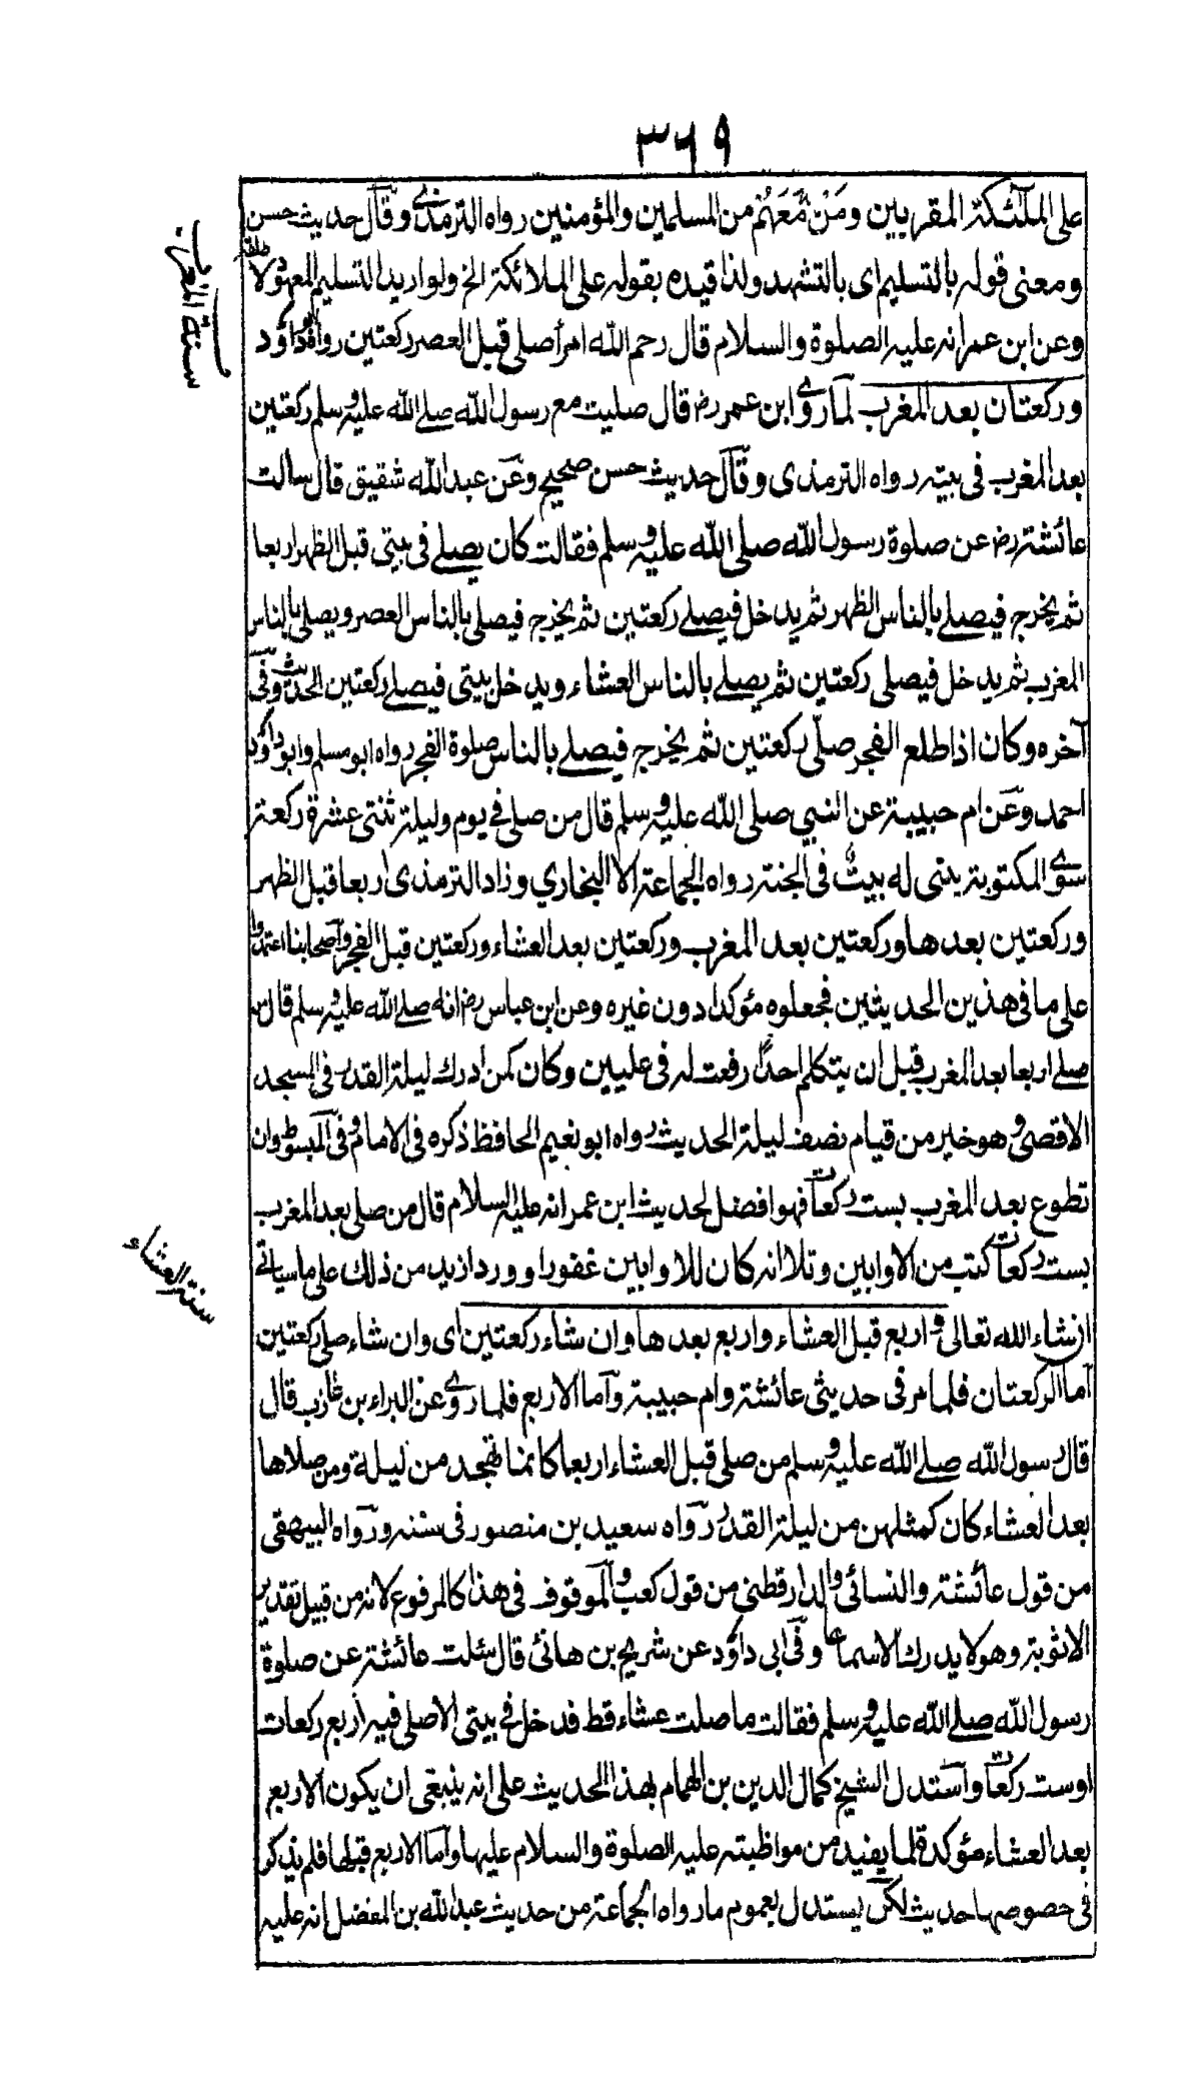 ٣٦٩
على الملٰئكة المقربين ومَنْ مَعَهُمْ من المسلمين والمؤمنين رواه الترمذى وقال حديث حسن
سنة المغرب
ومعنى قوله بالتسليم اى بالتشهد ولذا قيده بقوله على الملائكة الخ ولو اريد التسليم المعهود لا
وعن ابن عمر انه عليه الصلوة والسلام قال رحم الله امرأ صلى قبل العصر ركعتين رواه داؤد
وركعتان بعد المغرب لما روى ابن عمر رض قال صليت مع رسول الله صلے الله عليه وسلم ركعتين
بعد المغرب فى بيته رواه الترمذى وقال حديث حسن صحيح وعن عبد الله شقيق قال سالت
عائشة رض عن صلوة رسول الله صلى الله عليه وسلم فقالت كان يصلے فى بيتى قبل الظهر اربعا
ثم يخرج فيصلے بالناس الظهر ثم يدخل فيصلے ركعتين ثم يخرج فيصلى بالناس العصر ويصلى بالناس
المغرب ثم يدخل فيصلى ركعتين ثم يصلے بالناس العشاء ويدخل بيتى فيصلے ركعتين الحديث وفى
آخره وكان اذا طلع الفجر صلّى ركعتين ثم يخرج فيصلے بالناس صلوة الفجر رواه ابو مسلم وابو داؤد
احمد وعن ام حبيبة عن النبي صلى الله عليه وسلم قال من صلى فى يوم وليلة ثنتى عشرة ركعة
سوى المكتوبة يبنى له بيتٌ فى الجنة رواه الجماعة الا البخاري وزاد الترمذى اربعا قبل الظهر
وركعتين بعدها وركعتين بعد المغرب وركعتين بعد العشاء وركعتين قبل الفجر واصحابنا اعتمدوا
على ما فى هذين الحديثين فجعلوه مؤكدا دون غيره وعن ابن عباس رض انه صلے الله عليه وسلم قال من
صلے اربعا بعد المغرب قبل ان يتكلم احدًا رفعت له فى عليين وكان كمن ادرك ليلة القدر فى المسجد
الاقصى وهو خير من قيام نصف ليلة الحديث رواه ابو نعيم الحافظ ذكره فى الامام وفى المبسوط وان
تطوع بعد المغرب بست ركعات فهو افضل لحديث ابن عمر انه عليه السلام قال من صلى بعد المغرب
سنة العشاء
بست ركعات كتب من الاوابين وتلا انه كان للاوابين غفورا وورد ازيد من ذلك على ما سياتى
ان شاء الله تعالى واربع قبل العشاء واربع بعدها وان شاء ركعتين اى وان شاء صلى ركعتين
اما الركعتان فلما مر فى حديثى عائشة وام حبيبة واما الاربع فلما روى عن البراء بن عازب قال
قال رسول الله صلے الله عليه وسلم من صلى قبل العشاء اربعا كانما تهجد من ليلة ومن صلاها
بعد العشاء كان كمثلهن من ليلة القدر رواه سعيد بن منصور فى سننه ورواه البيهقى
من قول عائشة والنسائى والدارقطنى من قول كعب والموقوف فى هذا كالمرفوع لانه من قبيل تقدير
الاثوبة وهو لا يدرك الا سماعا وفى ابى داؤد عن شريح بن هانئ قال سئلت عائشة عن صلوة
رسول الله صلے الله عليه وسلم فقالت ما صلى عشاء قط فدخل فى بيتى الا صلى فيه اربع ركعات
او ست ركعات واستدل الشيخ كمال الدين بن الهمام بهذا الحديث على انه ينبغى ان يكون الاربع
بعد العشاء مؤكدة لما يفيد من مواظبته عليه الصلوة والسلام عليها واما الاربع قبلها فلم يذكر
فى خصوصها حديث لكن يستدل بعموم ما رواه الجماعة من حديث عبد الله بن المغفل انه عليه